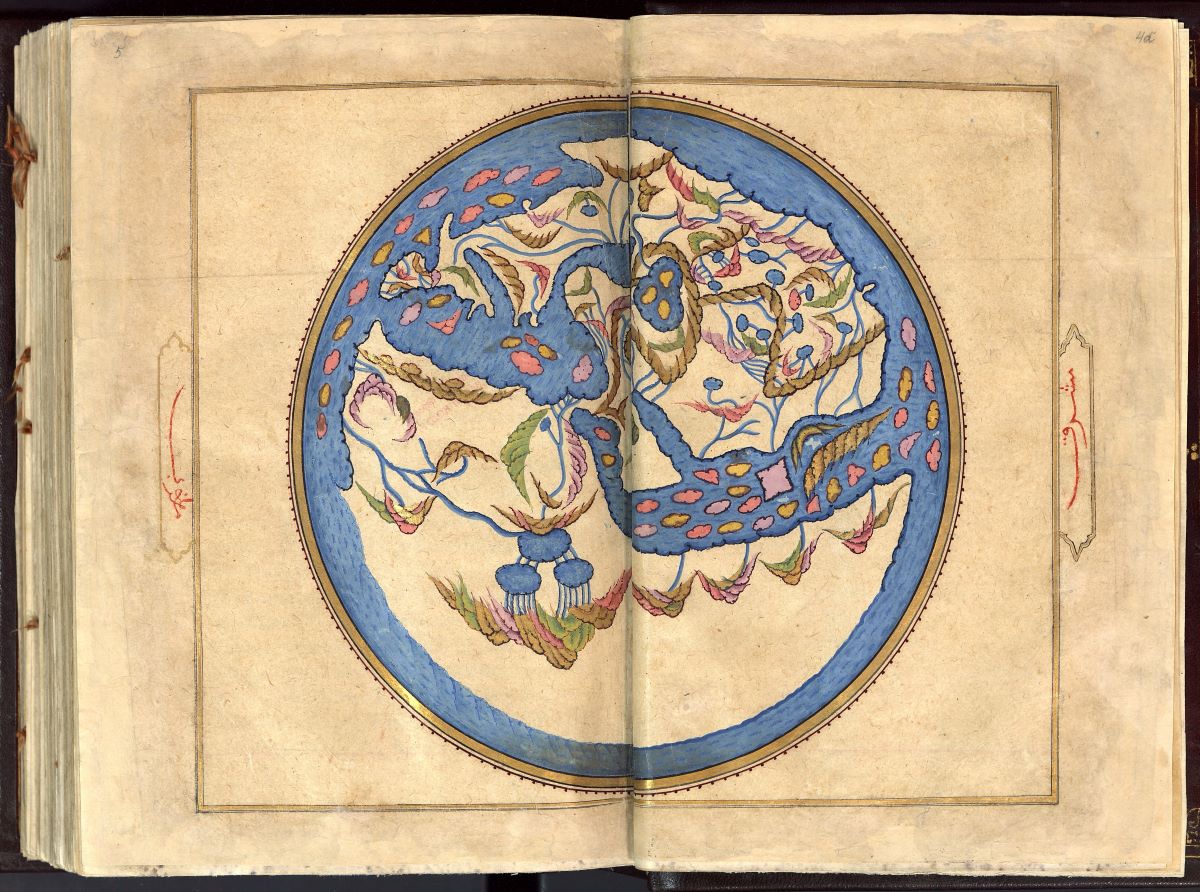 5
4a
مشرق
مغرب